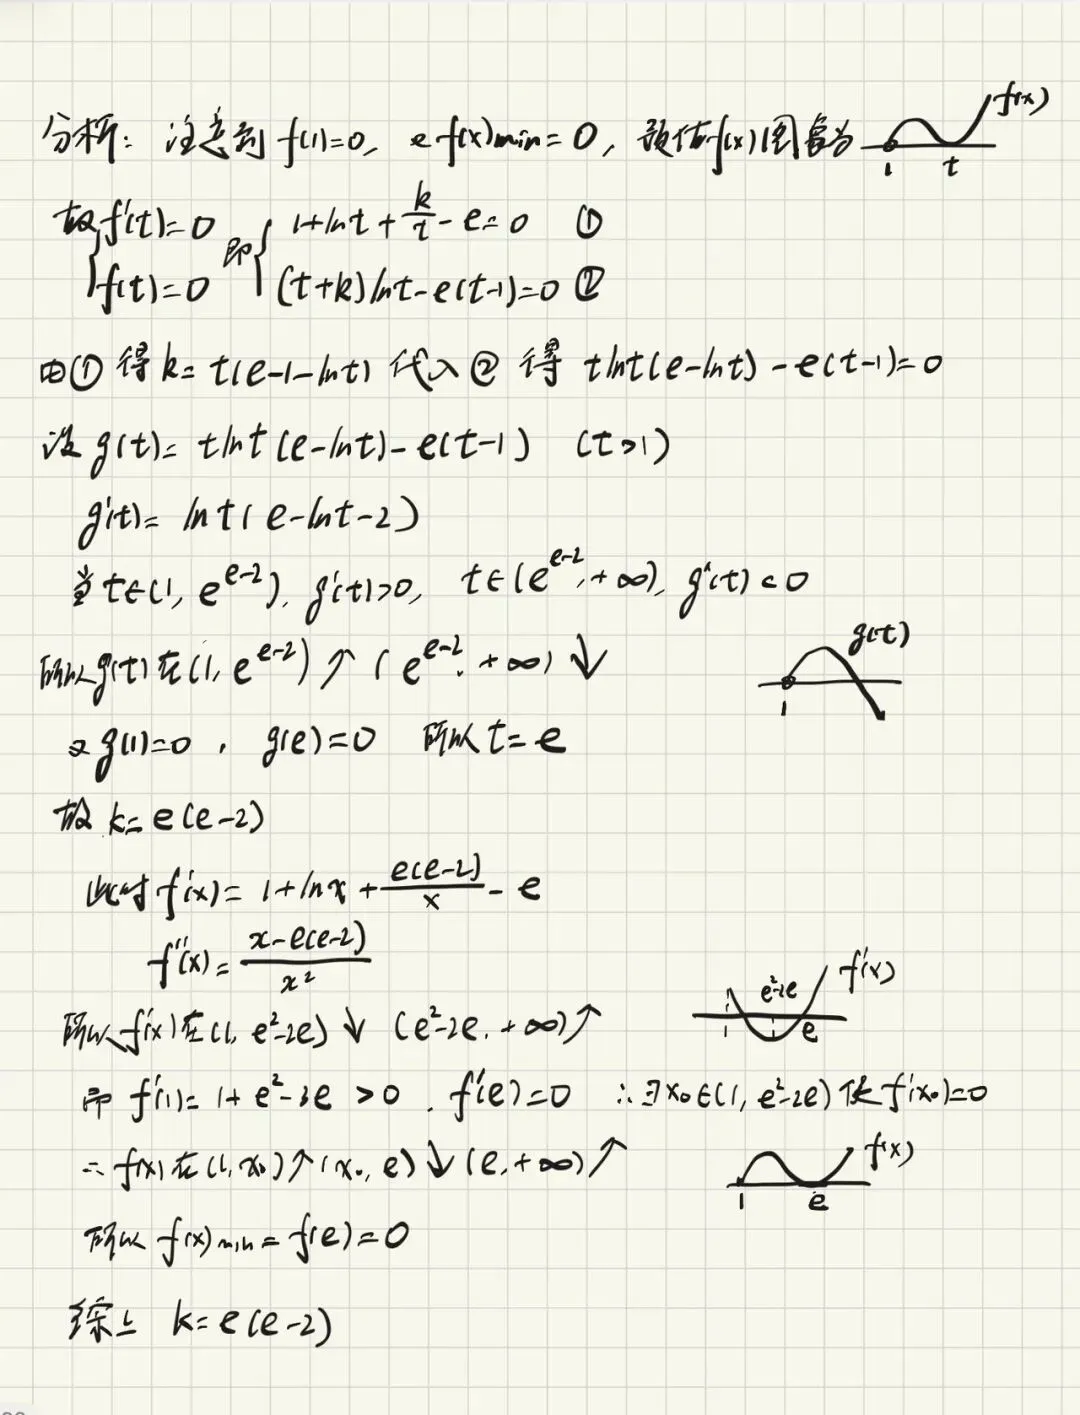 分析: 注意到 f(1)=0, e f(x)min=0, 预估f(x)图象为 f(x)
1 t
故 { f'(t)=0 即 { 1+lnt+k/t-e=0 ①
f(t)=0 (t+k)lnt-e(t-1)=0 ②
由① 得 k=t(e-1-lnt) 代入② 得 tlnt(e-lnt)-e(t-1)=0
设 g(t)=tlnt(e-lnt)-e(t-1) (t>1)
g'(t)=lnt(e-lnt-2)
当 t∈(1, e^{e-2}), g'(t)>0, t∈(e^{e-2}, +∞), g'(t)<0
所以 g(t) 在(1, e^{e-2})↑ (e^{e-2}, +∞)↓ g(t)
1
又 g(1)=0, g(e)=0 所以 t=e
故 k=e(e-2)
此时 f'(x)=1+lnx+e(e-2)/x-e
f''(x)=x-e(e-2)/x²
所以 f'(x) 在(1, e²-2e)↓ (e²-2e, +∞)↑ f'(x)
e²-2e
1 e
而 f'(1)=1+e²-3e>0, f'(e)=0 ∴∃x₀∈(1, e²-2e) 使 f'(x₀)=0
∴ f(x) 在(1, x₀)↑(x₀, e)↓(e, +∞)↑ f(x)
1 e
所以 f(x)min=f(e)=0
综上 k=e(e-2)